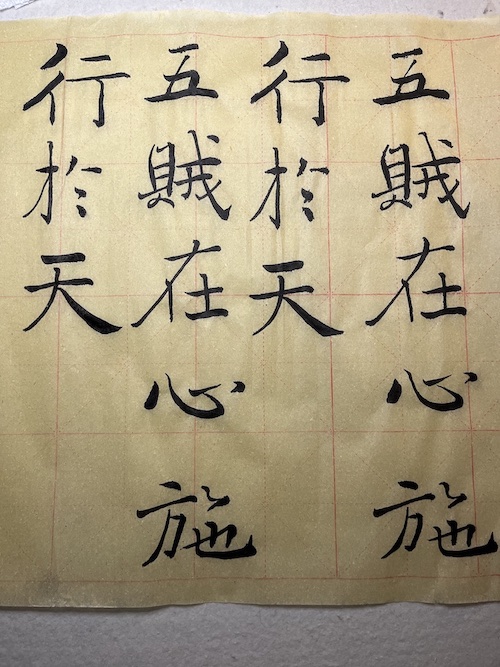 五賊在心施
行於天
五賊在心施
行於天